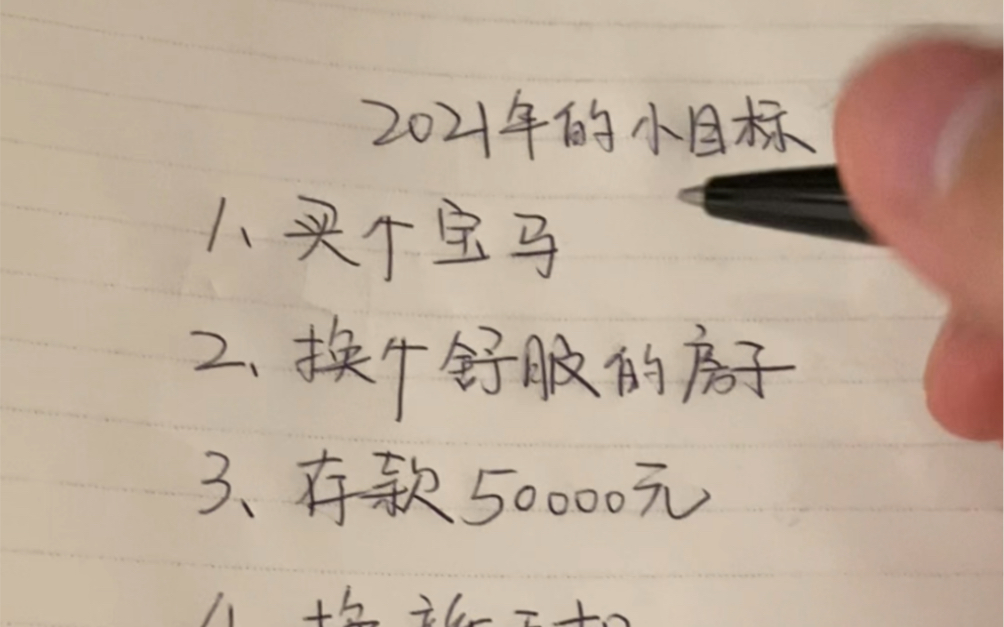 2021年的小目标
1、买个宝马
2、换个舒服的房子
3、存款50000元
4、换新手机